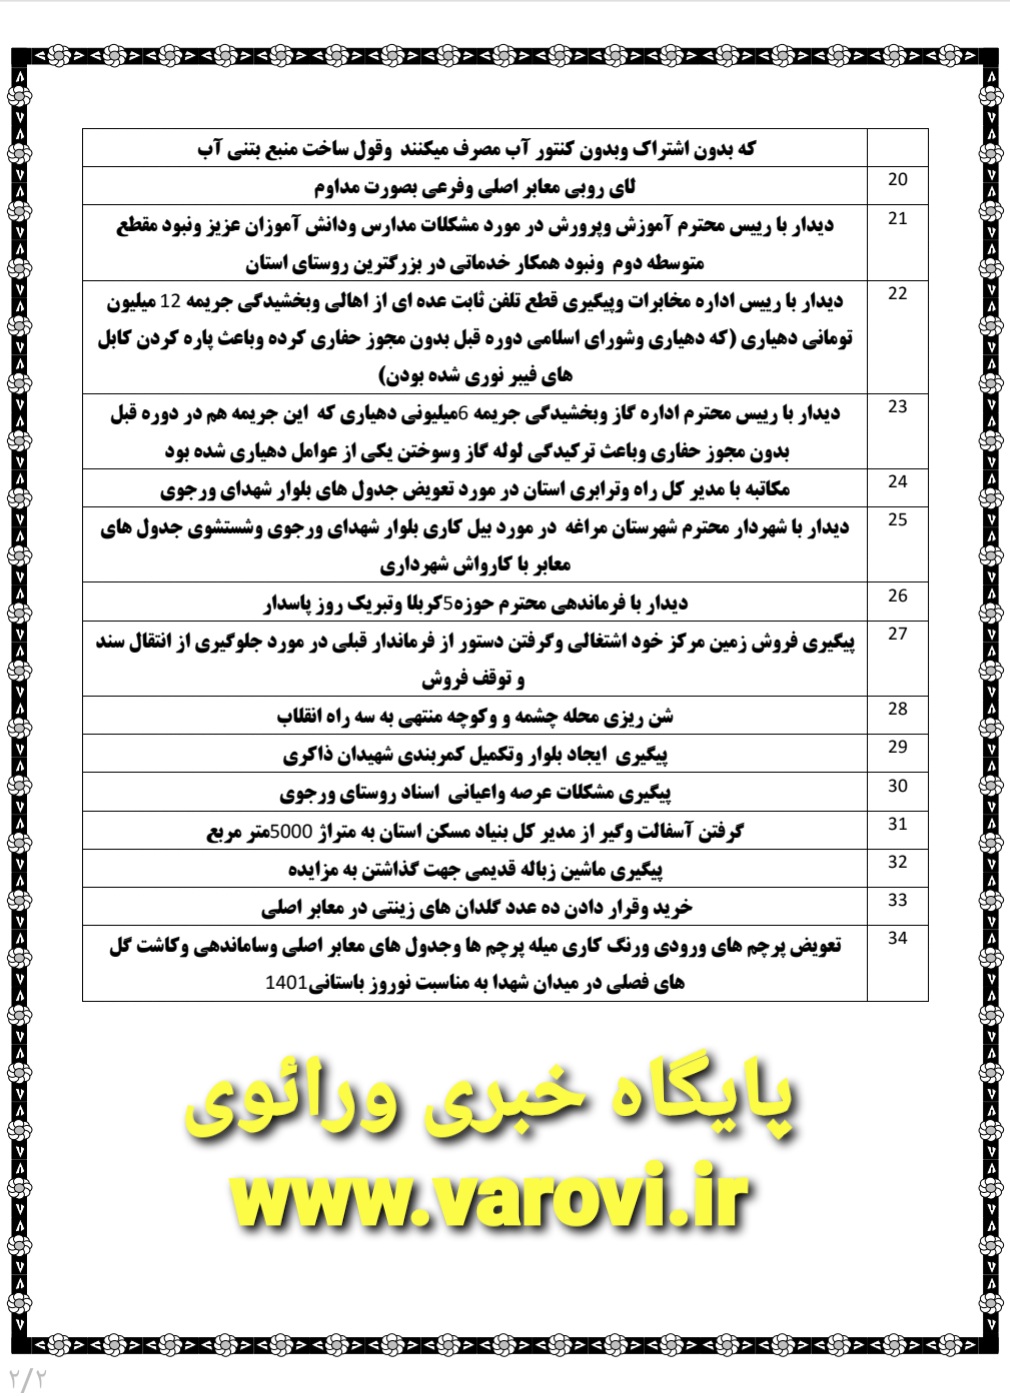 که بدون اشتراک وبدون کنتور آب مصرف میکنند وقول ساخت منبع بتنی آب
20 لای روبی معابر اصلی وفرعی بصورت مداوم
21 دیدار با رییس محترم آموزش وپرورش در مورد مشکلات مدارس ودانش آموزان عزیز ونبود مقطع
متوسطه دوم ونبود همکار خدماتی در بزرگترین روستای استان
22 دیدار با رییس اداره مخابرات وپیگیری قطع تلفن ثابت عده ای از اهالی وبخشیدگی جریمه 12 میلیون
تومانی دهیاری (که دهیاری وشورای اسلامی دوره قبل بدون مجوز حفاری کرده وباعث پاره کردن کابل
های فیبر نوری شده بودن)
23 دیدار با رییس محترم اداره گاز وبخشیدگی جریمه 6میلیونی دهیاری که این جریمه هم در دوره قبل
بدون مجوز حفاری وباعث ترکیدگی لوله گاز وسوختن یکی از عوامل دهیاری شده بود
24 مکاتبه با مدیر کل راه وترابری استان در مورد تعویض جدول های بلوار شهدای ورجوی
25 دیدار با شهردار محترم شهرستان مراغه در مورد بیل کاری بلوار شهدای ورجوی وشستشوی جدول های
معابر با کارواش شهرداری
26 دیدار با فرماندهی محترم حوزه5کربلا وتبریک روز پاسدار
27 پیگیری فروش زمین مرکز خود اشتغالی وگرفتن دستور از فرماندار قبلی در مورد جلوگیری از انتقال سند
و توقف فروش
28 شن ریزی محله چشمه و وکوچه منتهی به سه راه انقلاب
29 پیگیری ایجاد بلوار وتکمیل کمربندی شهیدان ذاکری
30 پیگیری مشکلات عرصه واعیانی اسناد روستای ورجوی
31 گرفتن آسفالت وگیر از مدیر کل بنیاد مسکن استان به متراژ 5000متر مربع
32 پیگیری ماشین زباله قدیمی جهت گذاشتن به مزایده
33 خرید وقرار دادن ده عدد گلدان های زینتی در معابر اصلی
34 تعویض پرچم های ورودی ورنگ کاری میله پرچم ها وجدول های معابر اصلی وساماندهی وکاشت گل
های فصلی در میدان شهدا به مناسبت نوروز باستانی1401
پایگاه خبری ورائوی
www.varovi.ir
۲/۲